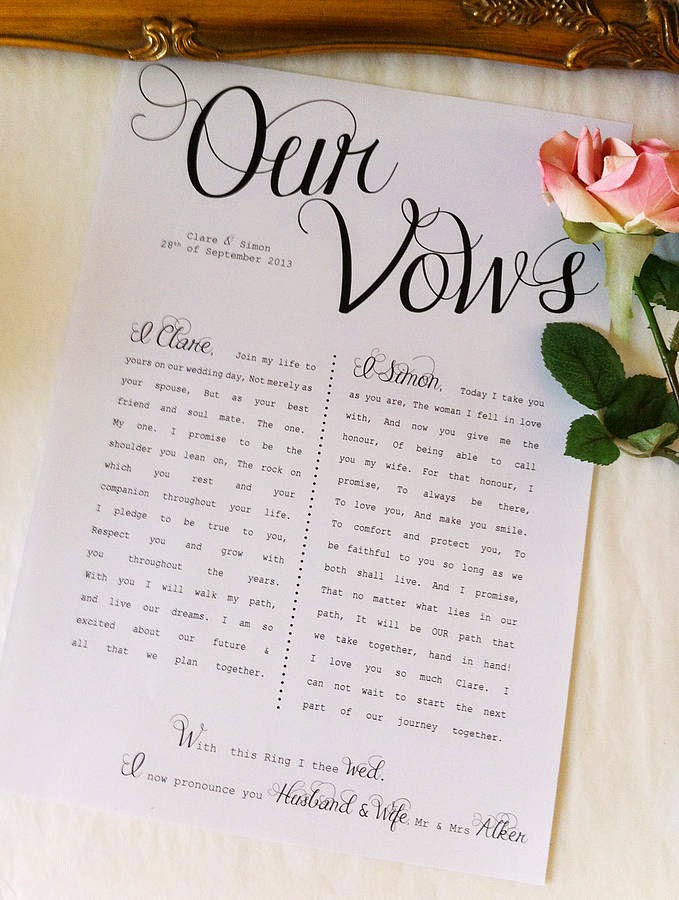 Our
Vows
Clare & Simon
28th of September 2013
I Clare, Join my life to
yours on our wedding day, Not merely as
your spouse, But as your best
friend and soul mate. The one.
My one. I promise to be the
shoulder you lean on, The rock on
which you rest and your
companion throughout your life.
I pledge to be true to you,
Respect you and grow with
you throughout the years.
With you I will walk my path,
and live our dreams. I am so
excited about our future &
all that we plan together.
I Simon, Today I take you
as you are, The woman I fell in love
with, And now you give me the
honour, Of being able to call
you my wife. For that honour, I
promise, To always be there,
To love you, And make you smile.
To comfort and protect you, To
be faithful to you so long as we
both shall live. And I promise,
That no matter what lies in our
path, It will be OUR path that
we take together, hand in hand!
I love you so much Clare. I
can not wait to start the next
part of our journey together.
With this Ring I thee wed.
I now pronounce you Husband & Wife, Mr & Mrs Alker